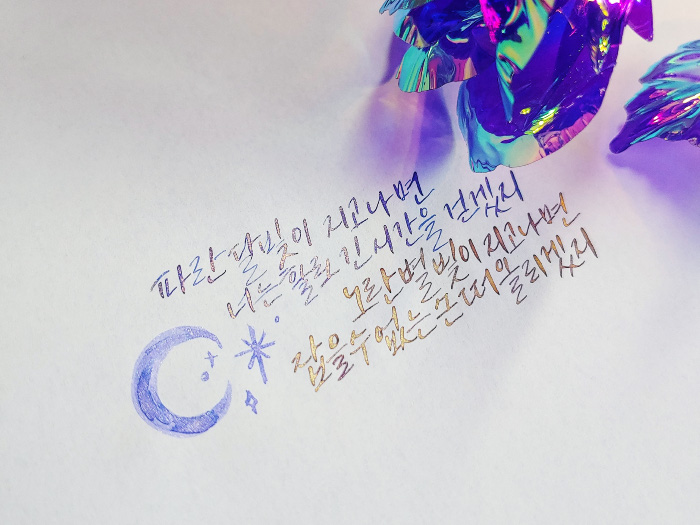 파란 달빛이 지고나면
너는 긴 시간을 걷겠지
노란 별빛이 지고나면
잡을수 없는 손 떠올리겠지